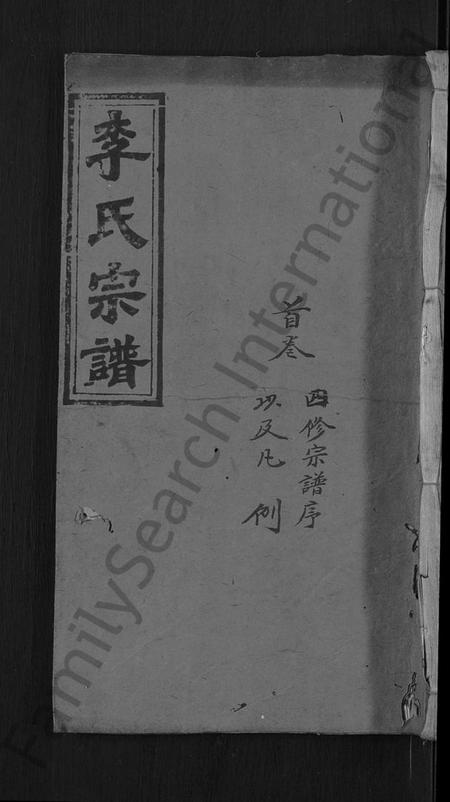 李氏宗譜
首卷
四修宗譜序
以及凡例
FamilySearch International